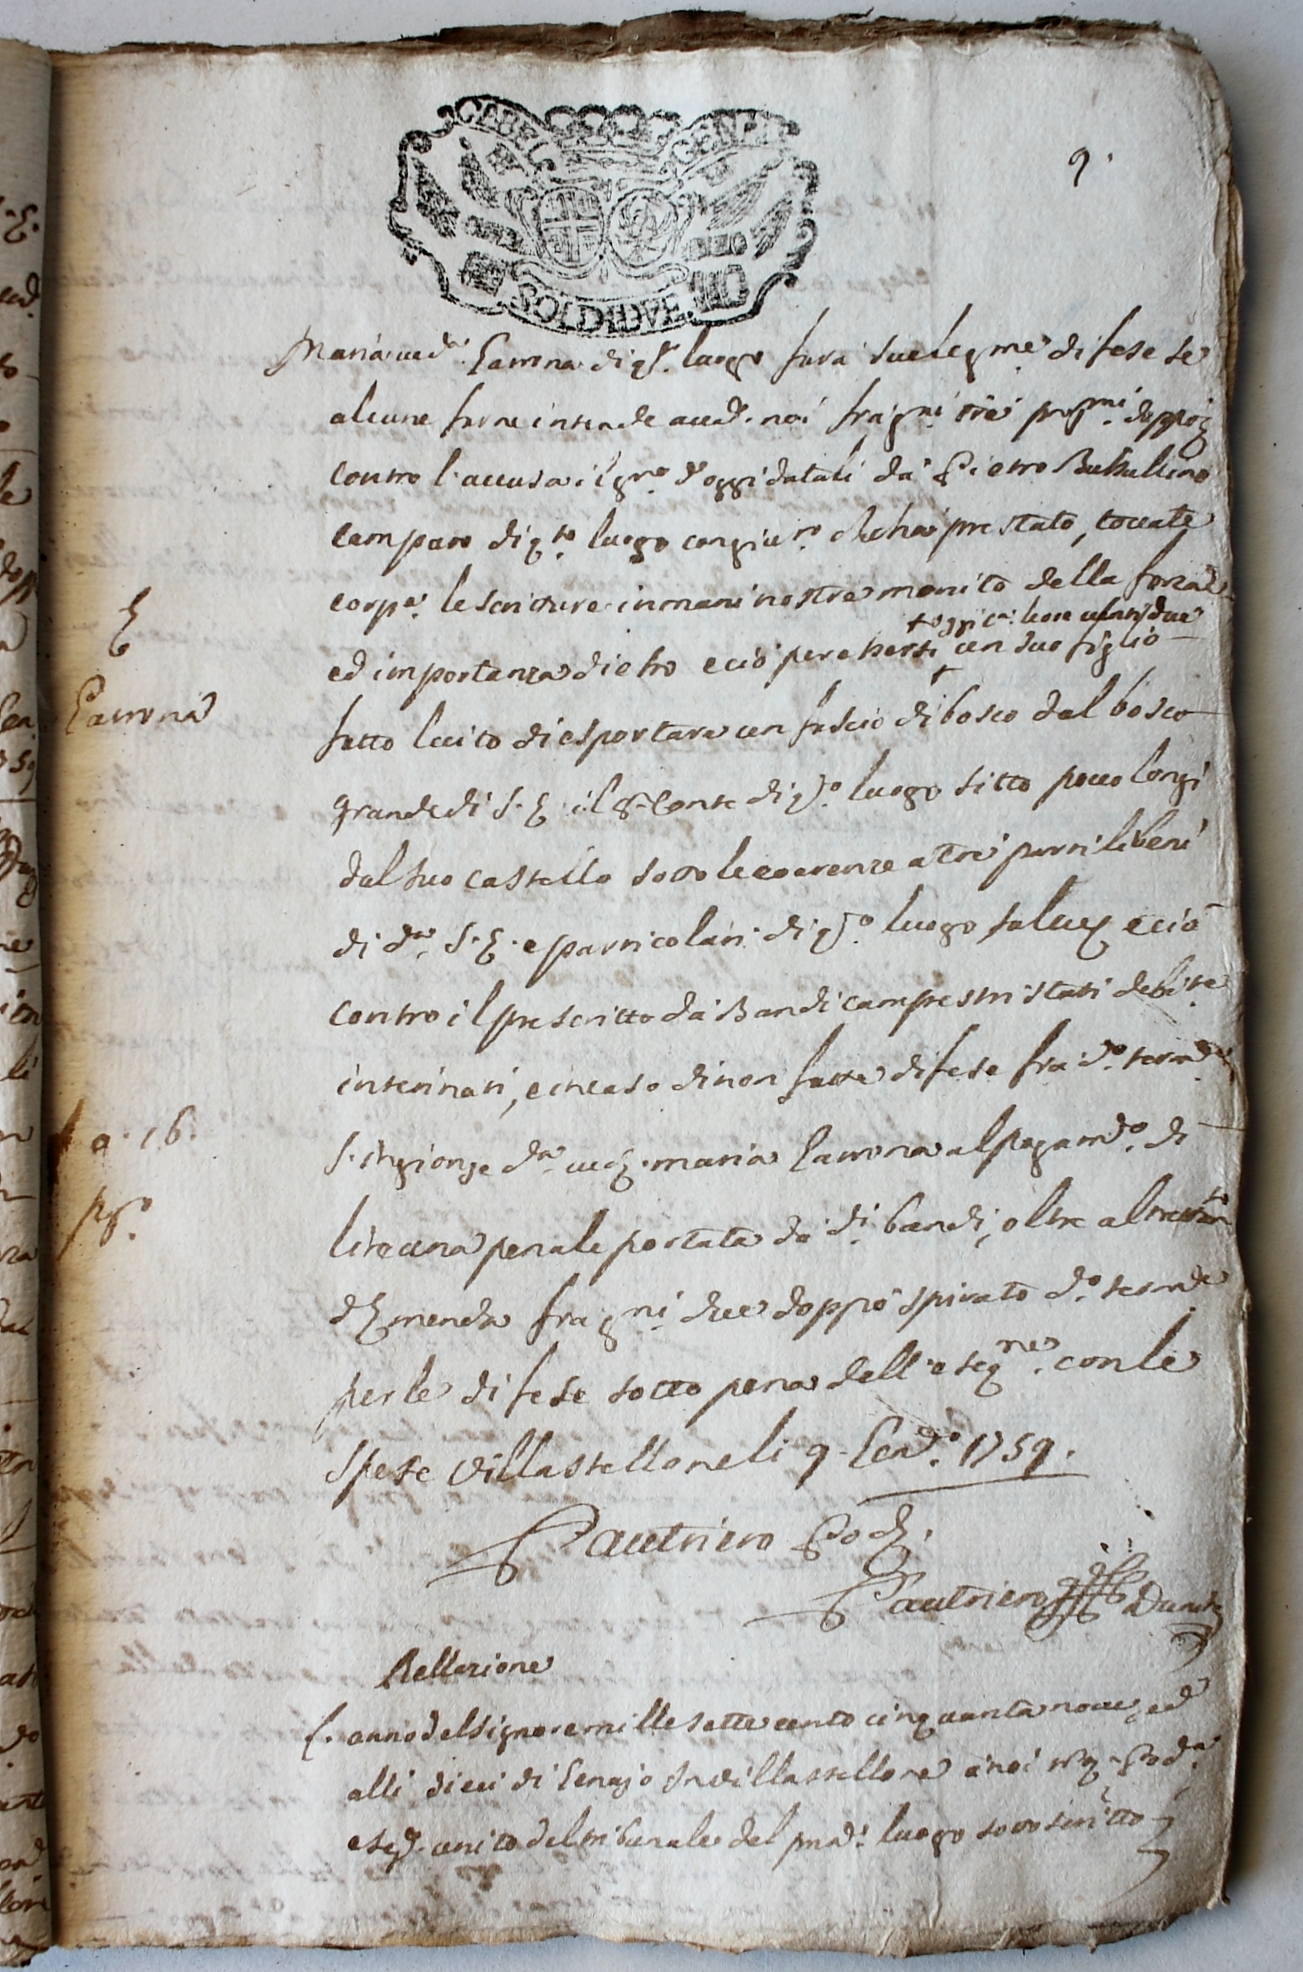 9.
SOLDI DUE
Maria ved.ª Gavona di q.to luogo farà sue leg.me difese se
alcune farne intende avad. noi fra g.ni tre pros.mi doppo
contro l'accusa il g.no d'oggi datali da Pietro
camparo di q.to luogo con giur.to che ha prestato, toccate
corp.e le scritture in mani nostre monito della forza
+ oggi
ed importanza di esso e ciò per haversi un suo figlio
Gavona
fatto lecito di esportare un fascio di bosco dal bosco
grande di S. E. il Sr. Conte di q.to luogo sitto pocco longi
dal suo castello sotto le coerenze a tre parti li beni
di d.ta S. E. e particolari di q.to luogo e ciò
contro il prescritto da Bandi campestri stati debite
interinati, e in caso di non fatte difese fra d.o term.e
a. 16.
s'ingionge d.ta ved. Maria Gavona al pagam.to di
lire una penale portata da d.i bandi, oltre
d'emenda fra g.ni due doppo spirato d.o term.e
per le difese sotto pena dell'eseq.ne con le
spese Villastellone li 9 Gen.ro 1759.
Pautriero Pod.
Pautriero
Rellazione
L'anno del Signore mille sette cento cinquanta nove, ed
alli dieci di Genajo in Villastellone a noi
unito del tribunale del pnd. luogo sottoscritto